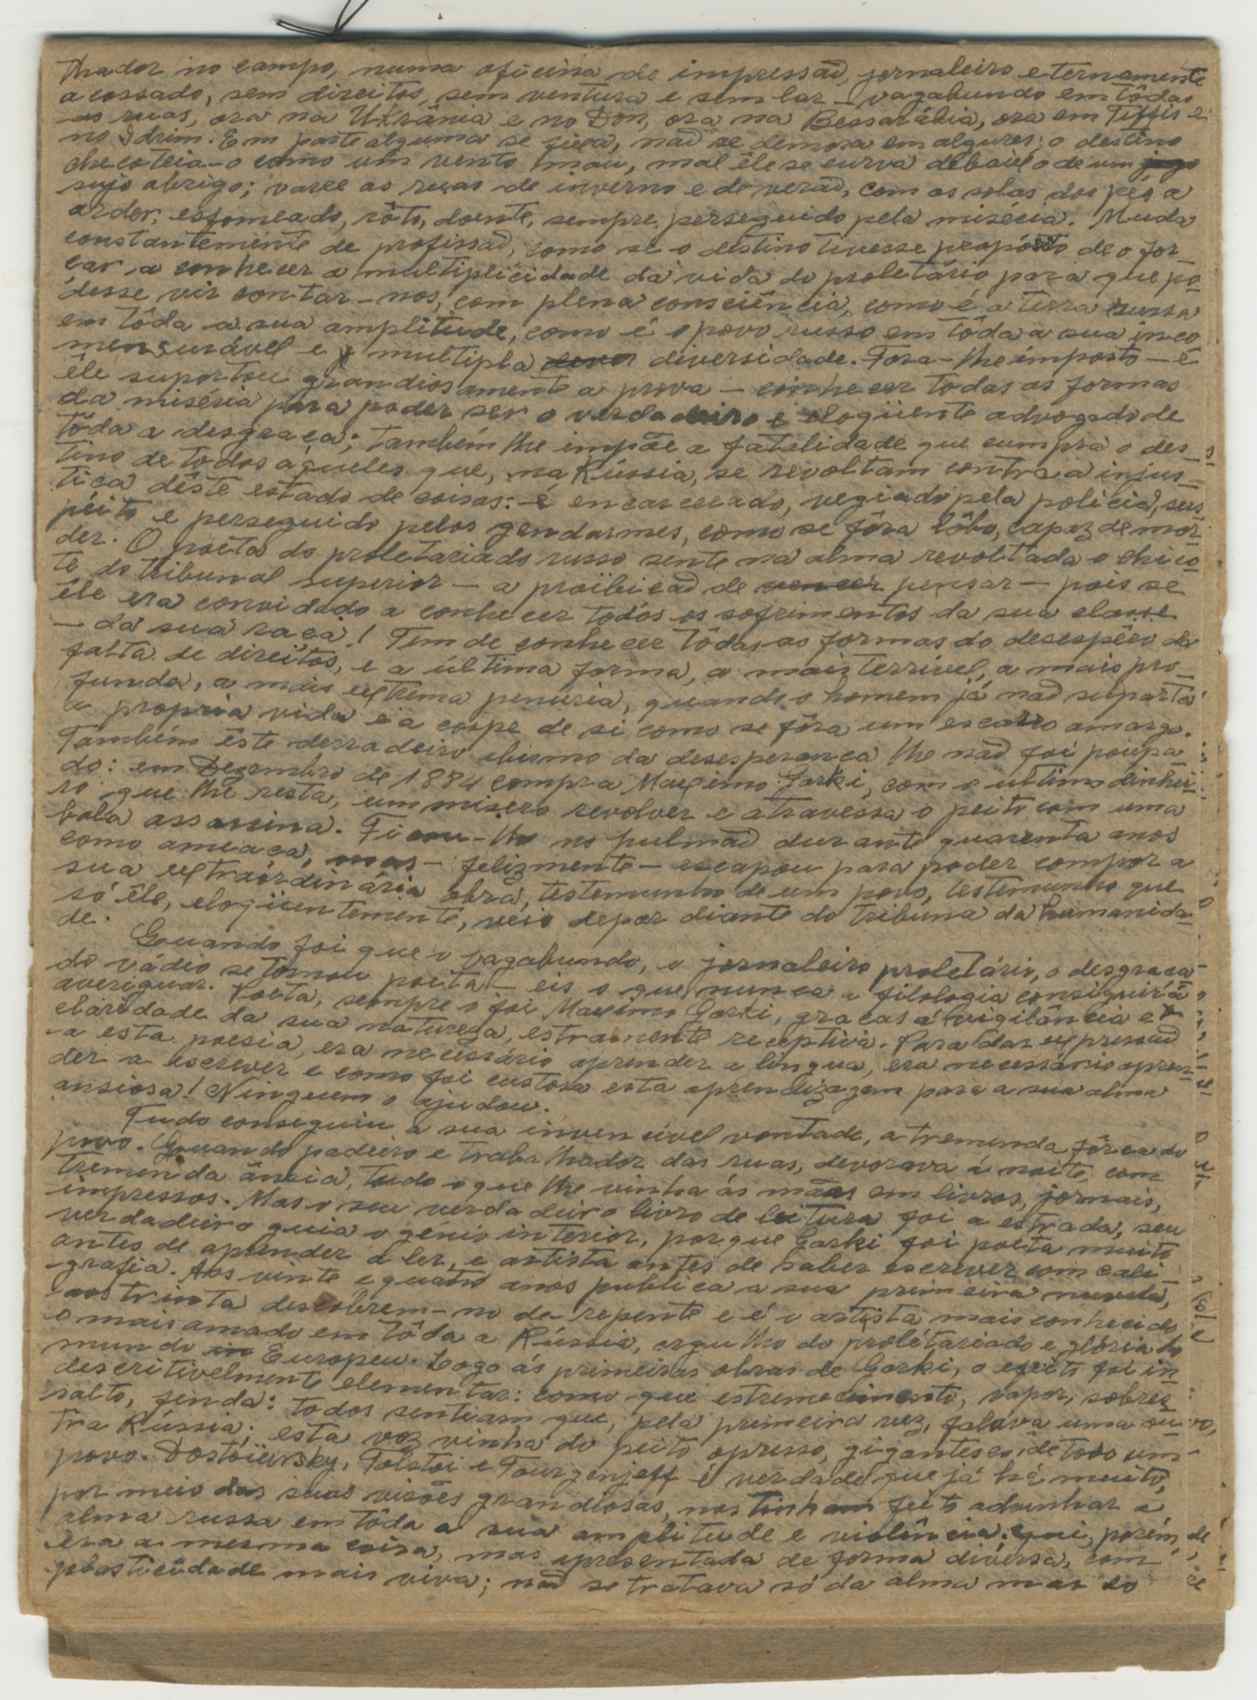 lhador no campo, numa oficina de impressão, jornaleiro eternamente
acossado, sem direitos, sem ventura e sem lar — vagabundo em tôdas
as ruas, ora na Ukrânia e no Don, ora na Bessarábia, ora em Tiflis e
no Idrim. Em parte alguma se fixa, não se demora em algures; o destino
chicoteia-o como um vento mau, mal êle se curva debaixo de um jugo
sujo abrigo; varre as ruas de inverno e de verão, com as solas dos pés a
arder, esfomeado, rôto, doente, sempre perseguido pela miséria. Muda
constantemente de profissão, como se o destino tivesse propósito de o for-
çar a conhecer a multiplicidade da vida do proletário para que pu-
desse vir contar-nos, com plena consciência, como é a terra russa
em tôda a sua amplitude, como é o povo russo em tôda a sua inco-
mensurável e multipla diversidade. Fora-lhe imposto — e
êle suportou grandiosamente a prova — conhecer todas as formas
da miséria para poder ser o verdadeiro e eloqüente advogado de
tôda a desgraça; também lhe impõe a fatalidade que cumpra o des-
tino de todos aqueles que, na Rússia, se revoltam contra a injus-
tiça dêste estado de coisas: — é encarcerado, vegiado pela policia, sus-
peito e perseguido pelos gendarmes, como se fôra lôbo, capaz de mor-
der. O poeta do proletariado russo sente na alma revoltada o chico-
te do tribunal superior — a proïbição de vencer pensar — pois se
êle era convidado a conhecer todos os sofrimentos da sua classe
— da sua raça! Tem de conhecer tôdas as formas do desespêro da
falta de direitos, e a última forma, a mais terrivel, a mais pro-
funda, a mais extrema penúria, quando o homem já não suporta
a propria vida e a cospe de si como se fôra um escarro amargo.
Também êste derradeiro abismo da desesperança lhe não foi poupa-
do: em Dezembro de 1884 compra Maximo Gorki, com o ultimo dinhei-
ro que lhe resta, um misero revolver e atravessa o peito com uma
bala assassina. Ficou-lhe no pulmão durante quarenta anos
como ameaça, mas — felizmente — escapou para poder compor a
sua extraordinária obra, testemunho de um povo, testemunho que
só êle, eloqüentemente, veio depor diante do tribuna da humanida-
de.
Quando foi que o vagabundo, o jornaleiro proletário, o desgraça-
do vádio se tornou poeta — eis o que nunca a filologia conseguirá
averiguar. Poeta, sempre o foi Maximo Gorki, graças á vigilância e
claridade da sua natureza, estranente receptiva. Para dar expressão
a esta poesia, era necessário aprender a língua, era necessário apren-
der a escrever e como foi custosa esta aprendizagem para a sua alma
ansiosa! Ninguem o ajudou.
Tudo conseguiu a sua invencível vontade, a tremenda fôrça do
povo. Quando padeiro e trabalhador das ruas, devorava á noite com
tremenda ânsia, tudo o que lhe vinha ás mãos em livros, jornais,
impressos. Mas o seu verdadeiro livro de leitura foi a estrada, seu
verdadeiro guia o génio interior, porque Gorki foi poeta muito
antes de aprender a ler, e artista antes de haber escrever com cali-
grafia. Aos vinte e quatro anos publica a sua primeira novela,
aos trinta descobrem-no de repente e é o artista mais conhecido,
o mais amado em tôda a Rússia, orgulho do proletariado e glória do
mundo Europeu. Logo as primeiras obras de Gorki, o efeito foi in-
descritivelmente elementar: como que estremecimento, vapor, sobres-
salto, fenda: todos sentiam que, pela primeira vez, falava uma ou-
tra Rússia; esta voz vinha do peito opresso, gigantesco, de todo um
povo. Dostoïewsky, Tolstoi e Tourgenjeff é verdade que já há muito,
por meio das suas visões grandiosas, nos tinham feito adivinhar a
alma russa em toda a sua amplitude e violência: aqui, porém,
era a mesma coisa, mas apresentada de forma diversa, com
plasticidade mais viva; não se tratava só da alma mas do